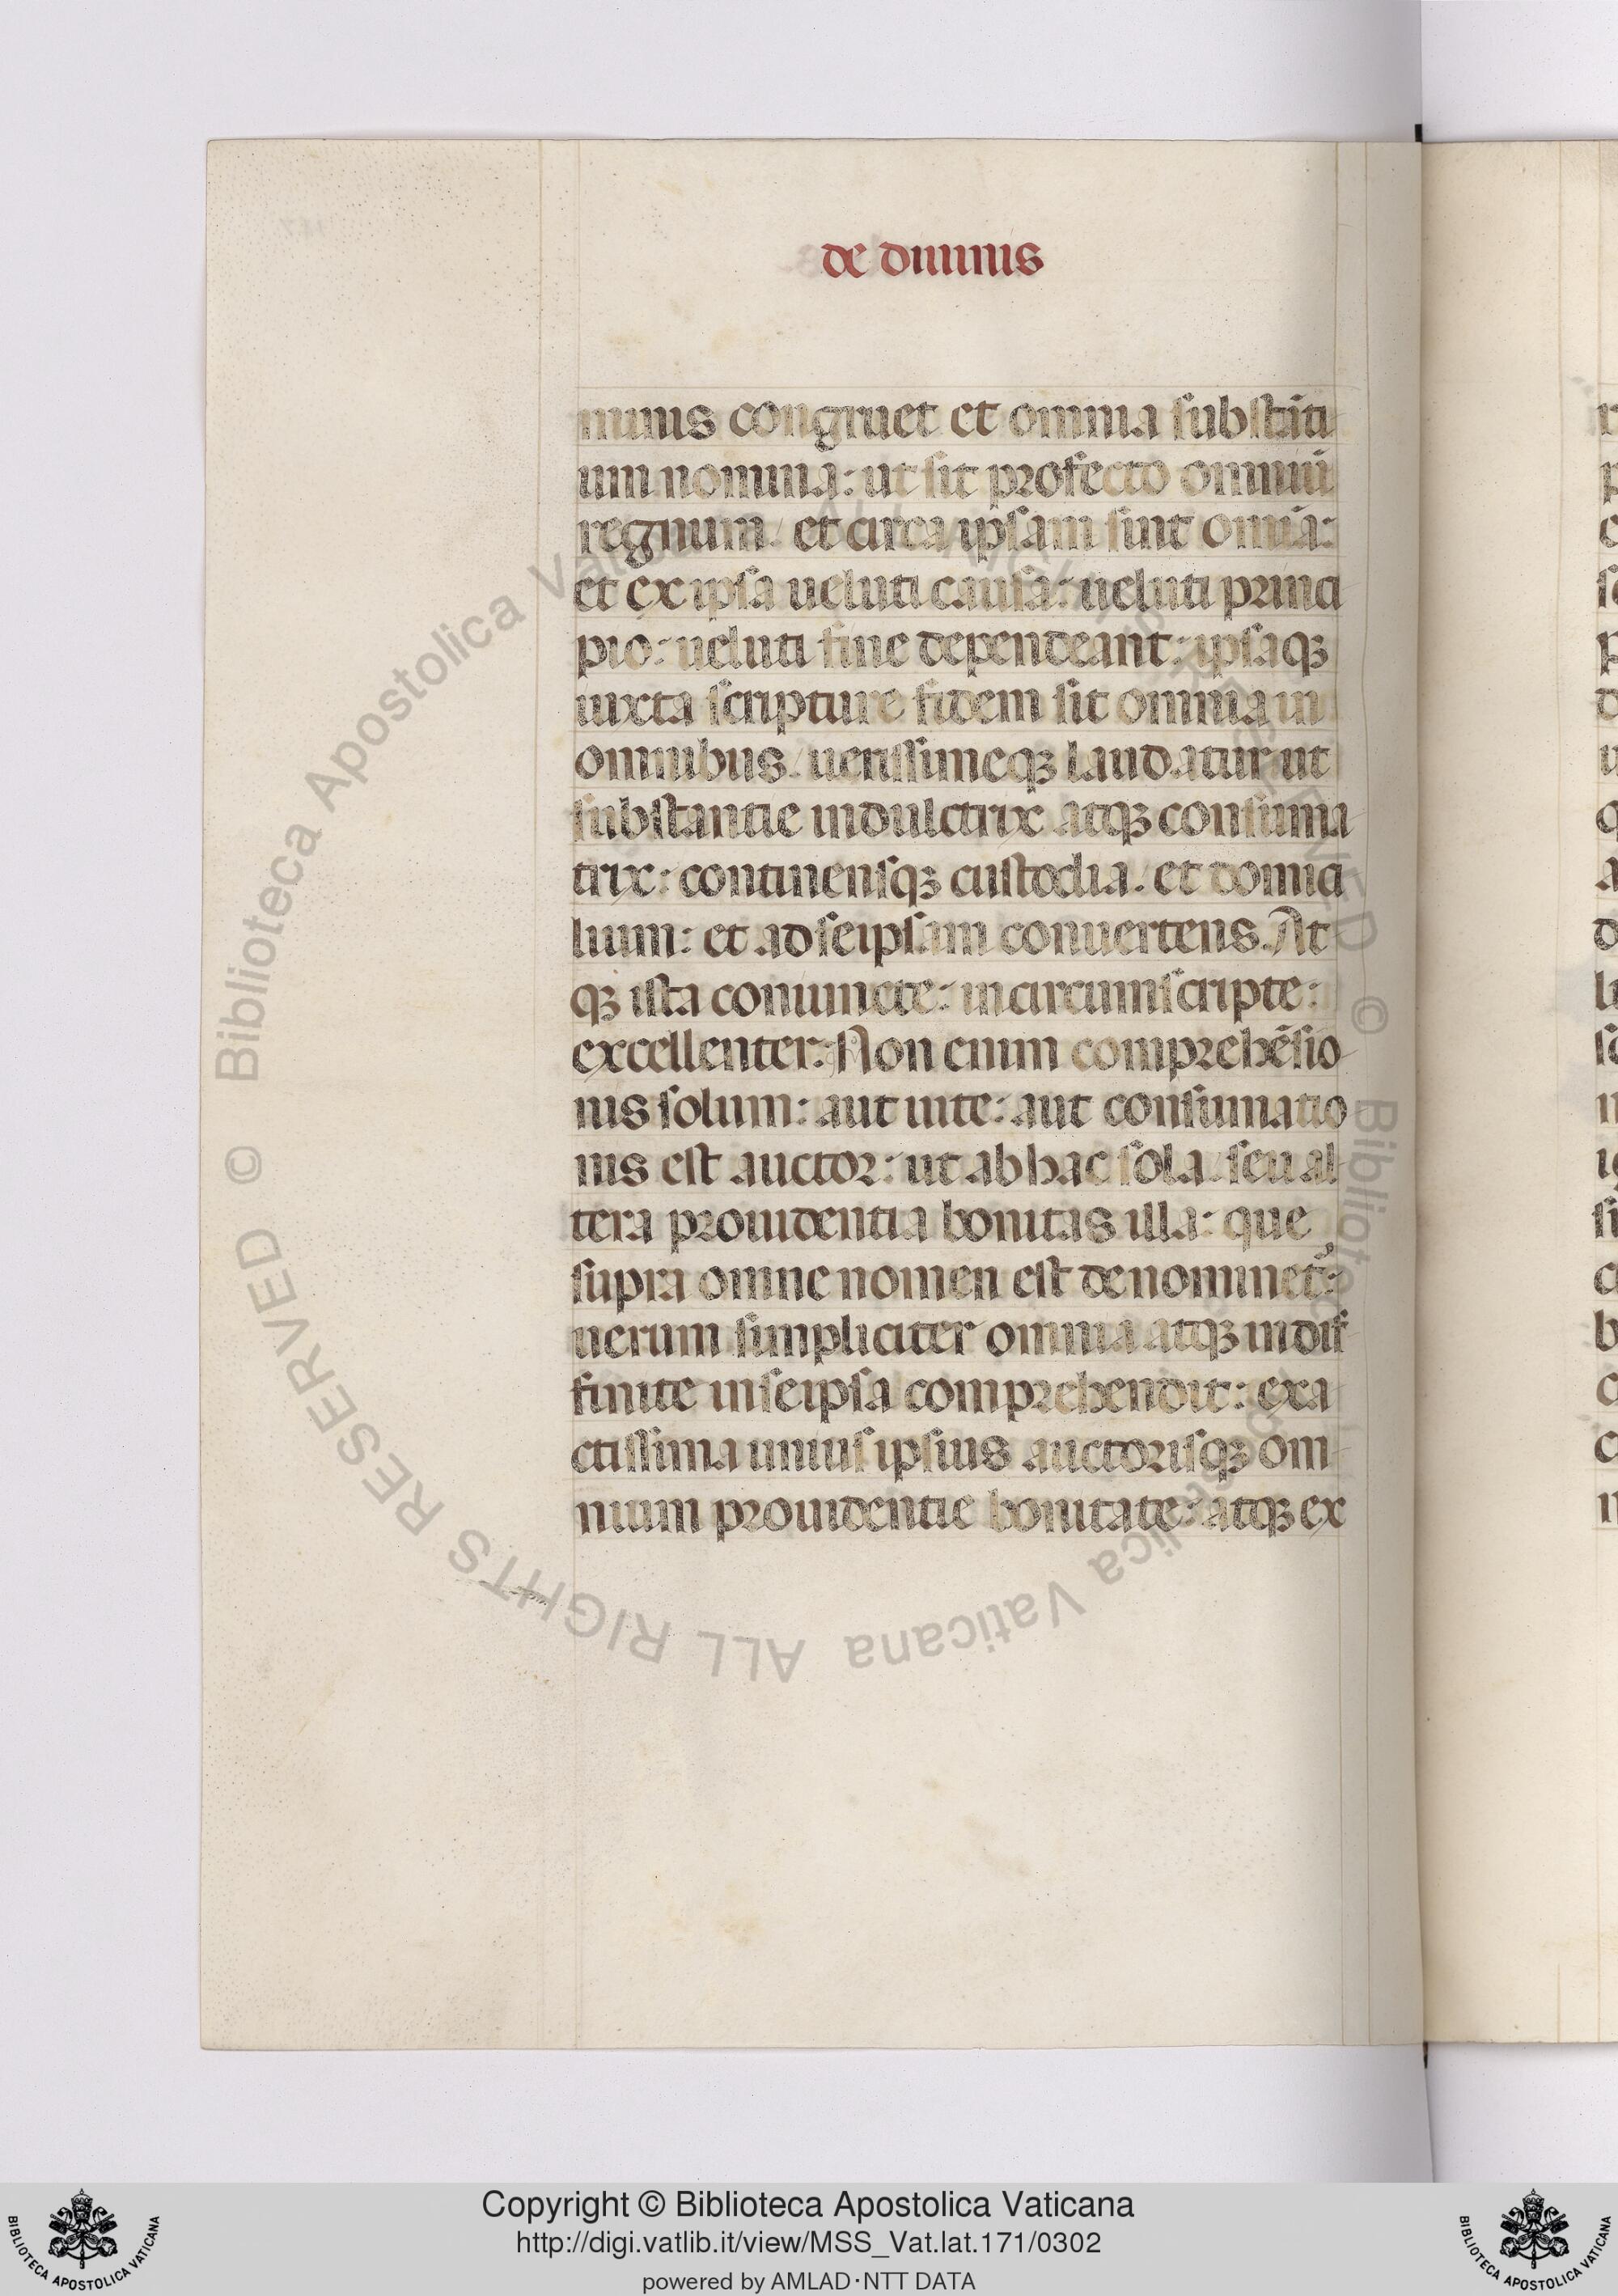 de diuinis
nunis congruet et omnia substāti
um nomina: ut sit profecto omniū
regnum. et circa ipsam sint omīa:
et ex ipsa ueluti causa: ueluti princi
pio: ueluti fine dependeant: ipsaqꝫ
iuxta scripture fidem sit omnia in
omnibus. uerissimeqꝫ laudatur ut
substantie indultrix atqꝫ consuma
trix: continensqꝫ custodia. et domici
lium: et ad seipsam conuertens. At
qꝫ ista coniuncte: incircumscripte:
excellenter: Non enim comprehēsio
nis solum: aut uite: aut consumatio
nis est auctor: ut ab hac sola. seu al
tera prouidentia bonitas illa: que
supra omne nomen est denominet᷒:
uerum simpliciter omnia atqꝫ indif
finite in seipsa comprehendit: exa
ctissima unius ipsius auctorisqꝫ om
nium prouidentie bonitate: atqꝫ ex
© Biblioteca Apostolica Vaticana ALL RIGHTS RESERVED
© Biblioteca Apostolica Vaticana ALL RIGHTS RESERVED
Copyright © Biblioteca Apostolica Vaticana
http://digi.vatlib.it/view/MSS_Vat.lat.171/0302
powered by AMLAD·NTT DATA
BIBLIOTECA APOSTOLICA VATICANA
BIBLIOTECA APOSTOLICA VATICANA